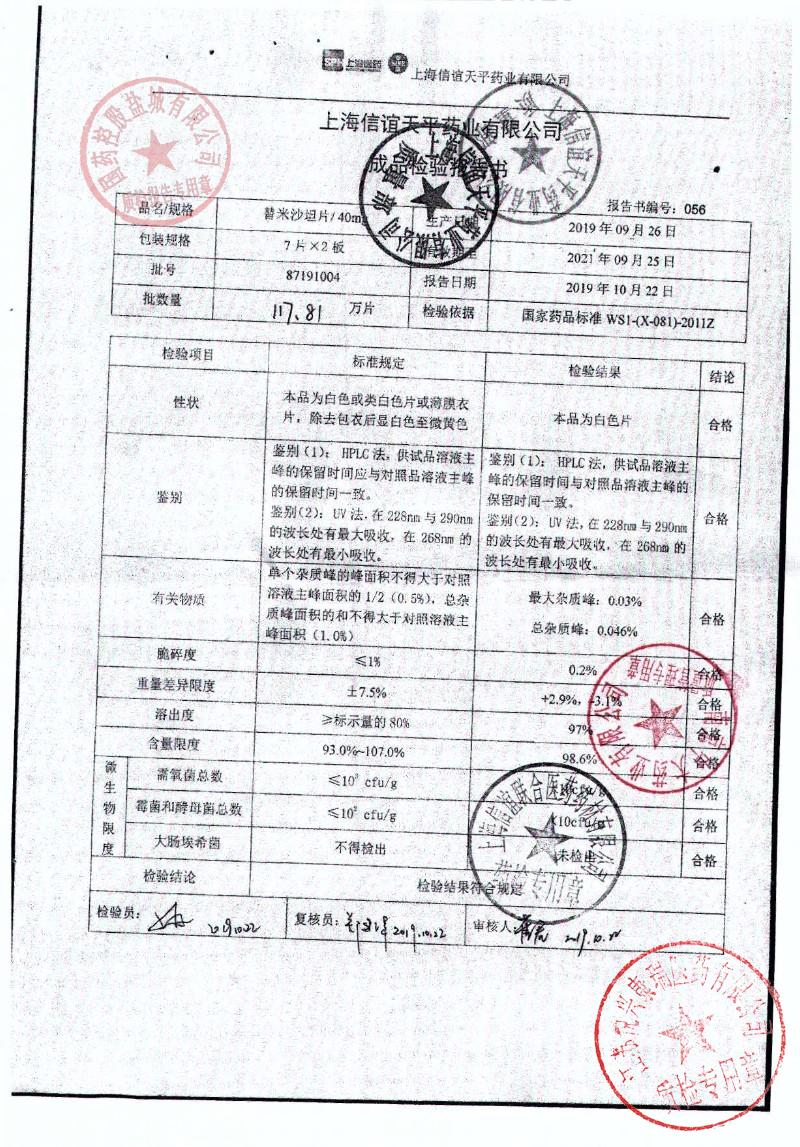 上海信谊天平药业有限公司
上海信谊天平药业有限公司
成品检验报告书
报告书编号：056
品名/规格 替米沙坦片/40mg 生产日期 2019年09月26日
包装规格 7片×2板 2021年09月25日
批号 87191004 报告日期 2019年10月22日
批数量 117.81 万片 检验依据 国家药品标准 WS1-(X-081)-2011Z
检验项目 标准规定 检验结果 结论
性状 本品为白色或类白色片或薄膜衣 本品为白色片 合格
片，除去包衣后显白色至微黄色
鉴别 鉴别(1)：HPLC法，供试品溶液主 鉴别(1)：HPLC法，供试品溶液主 合格
峰的保留时间应与对照品溶液主峰 峰的保留时间与对照品溶液主峰的
的保留时间一致。 保留时间一致。
鉴别(2)：UV法，在228nm与290nm 鉴别(2)：UV法，在228nm与290nm
的波长处有最大吸收，在268nm的 的波长处有最大吸收，在268nm的
波长处有最小吸收。 波长处有最小吸收。
有关物质 单个杂质峰的峰面积不得大于对照 最大杂质峰：0.03% 合格
溶液主峰面积的1/2（0.5%），总杂 总杂质峰：0.046%
质峰面积的和不得大于对照溶液主
峰面积（1.0%）
脆碎度 ≤1% 0.2% 合格
重量差异限度 ±7.5% +2.9%，-3.1% 合格
溶出度 ≥标示量的80% 97% 合格
含量限度 93.0%~107.0% 98.6% 合格
微生物限度
需氧菌总数 ≤10³ cfu/g 合格
霉菌和酵母菌总数 ≤10² cfu/g <10cfu/g 合格
大肠埃希菌 不得检出 未检出 合格
检验结论 检验结果符合规定
检验员： 20191022 复核员： 2019.10.22 审核人 2019.10.22
国药控股盐城有限公司
质检报告专用章
上海信谊天平药业有限公司
质量管理专用章
上海信谊联合医药药材有限公司
质检专用章
医药有限公司
质检专用章